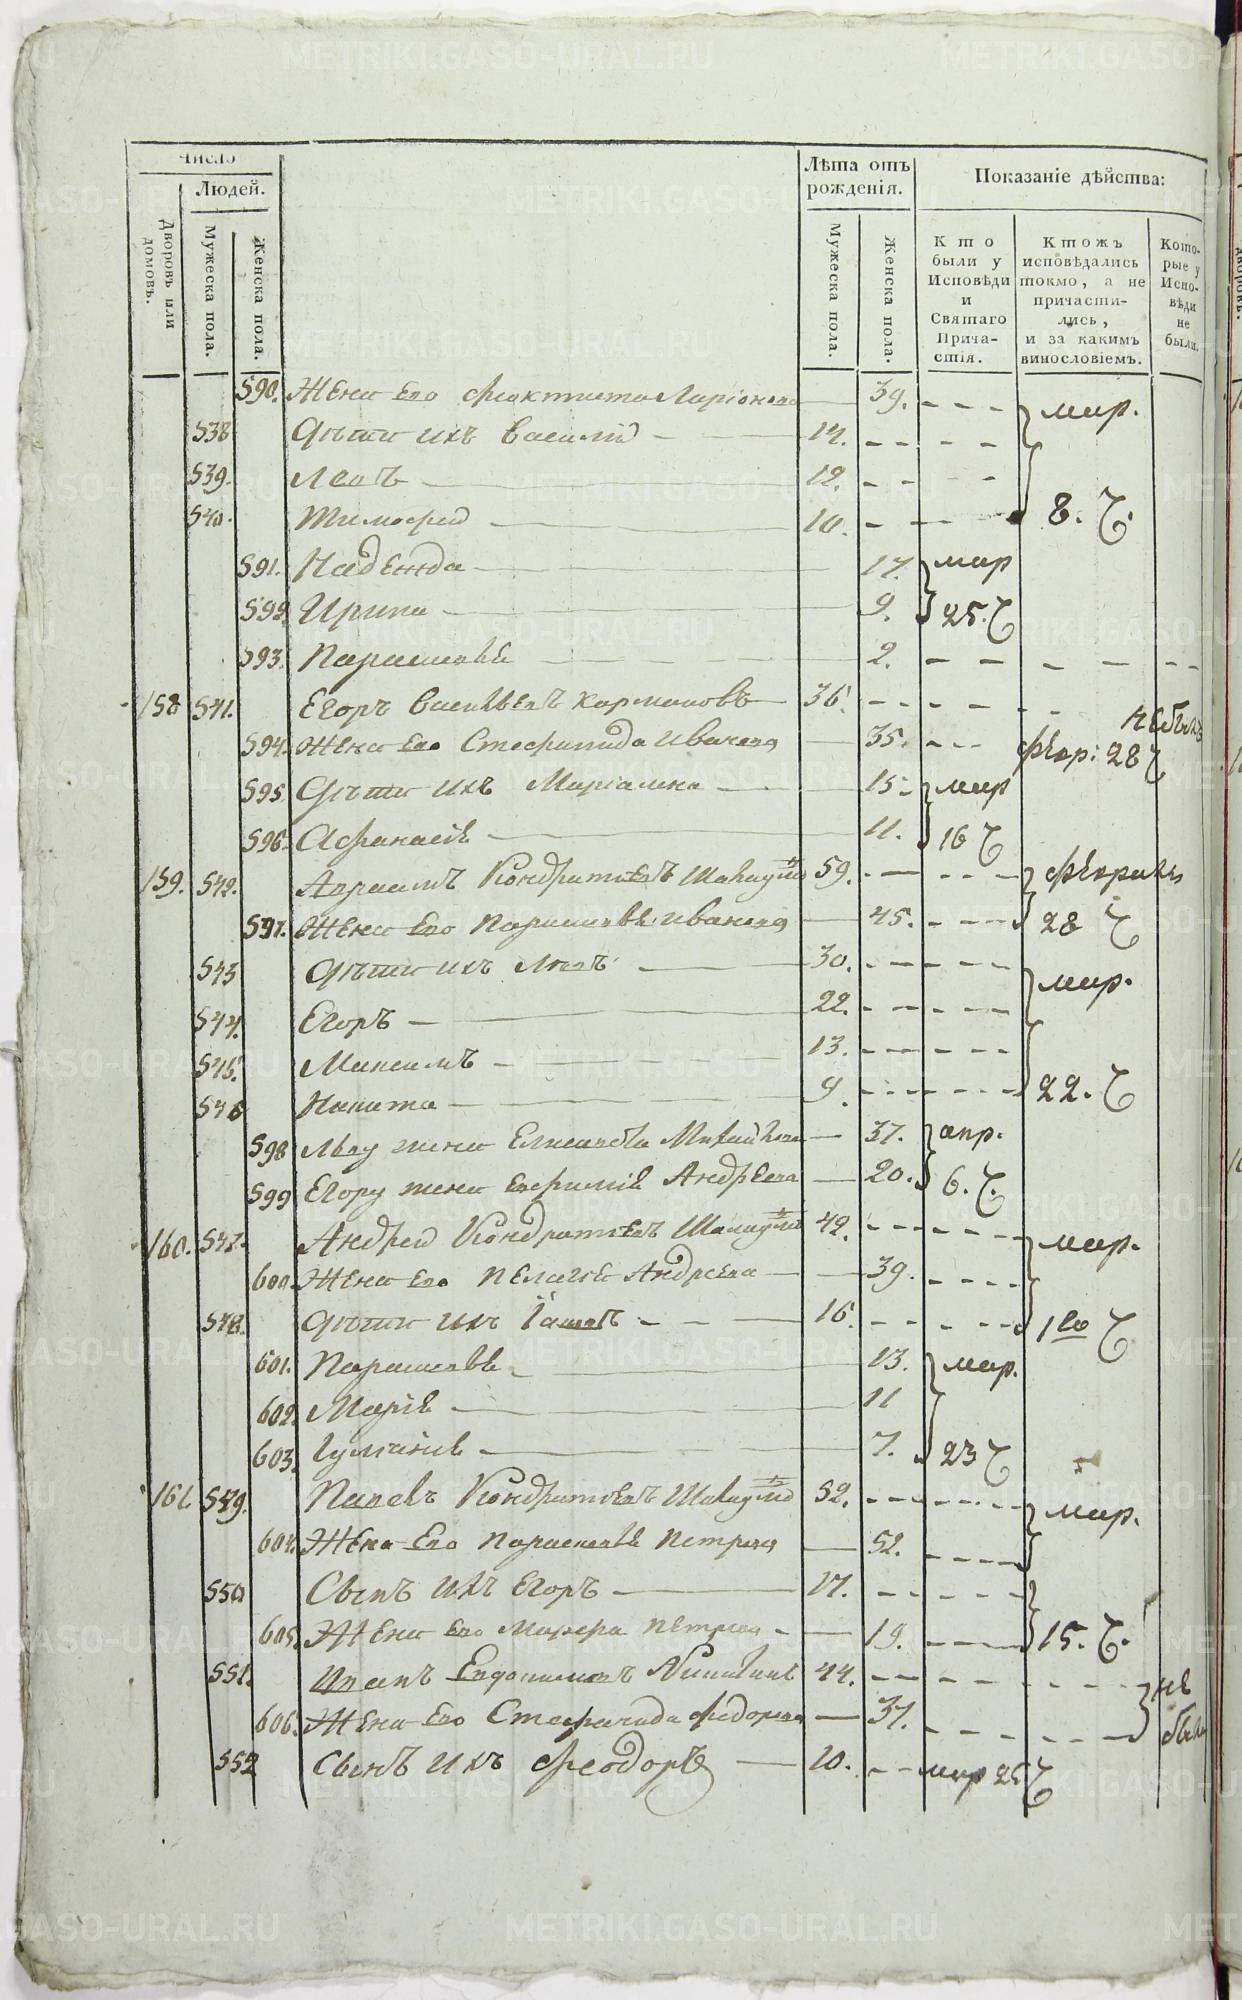 Число
Людей.
Дворовъ или домовъ.
Мужеска пола.
Женска пола.
Лѣта отъ рожденія.
Мужеска пола.
Женска пола.
Показаніе дѣйства:
Кто были у Исповѣди и Святаго Причастія.
Ктожъ исповѣдались токмо, а не причастились, и за какимъ винословіемъ.
Которые у Исповѣди не были.
590. Жена Его Феоктиста Ларіонова 39. мар.
538 Дѣти ихъ Василій 14.
539. Левъ 12.
540. Тимофей 10. 8. Ҁ.
591. Надежда 17. мар
592. Ирина 9. 25. Ҁ
593. Параскевья 2.
158 541. Егоръ Васильевъ Кормановъ 36.
небылъ
594. Жена Его Стефанида Иванова 35. февр: 28 Ҁ
595 Дѣти ихъ Маріамна 15. мар
596. Афанасія 11. 16 Ҁ
159. 542. Авраамъ Кондратьевъ 59.
597. Жена Его Параскевья Иванова 45. 28 Ҁ
543 Дѣти ихъ Левъ 30. мар.
544. Егоръ 22.
545. Максимъ 13.
546 Никита 9. 22. Ҁ
598 Льву жена Елисавета 37. апр.
599 Егору жена Евфимія Андреева 20. 6. Ҁ.
160. 547. Андрей Кондратьевъ 42. мар.
600. Жена Его Пелагея Андреева 39.
548. Дѣти ихъ 16. 1го Ҁ
601. Параскевья 13. мар.
602. Марія 11
603. Іуліанія 7. 23 Ҁ
161 549. Павелъ Кондратьевъ 52. мар.
604. Жена Его Параскевья Петрова 52.
550 Сынъ ихъ Егоръ 17.
605. Жена Его Марфа Петрова 19. 15. Ҁ.
551. Иванъ Евдокимовъ 44. не
606. Жена Его Стефанида Федорова 37. были
552 Сынъ ихъ Феодоръ 10. мар 25 Ҁ
METRIKI.GASO-URAL.RU